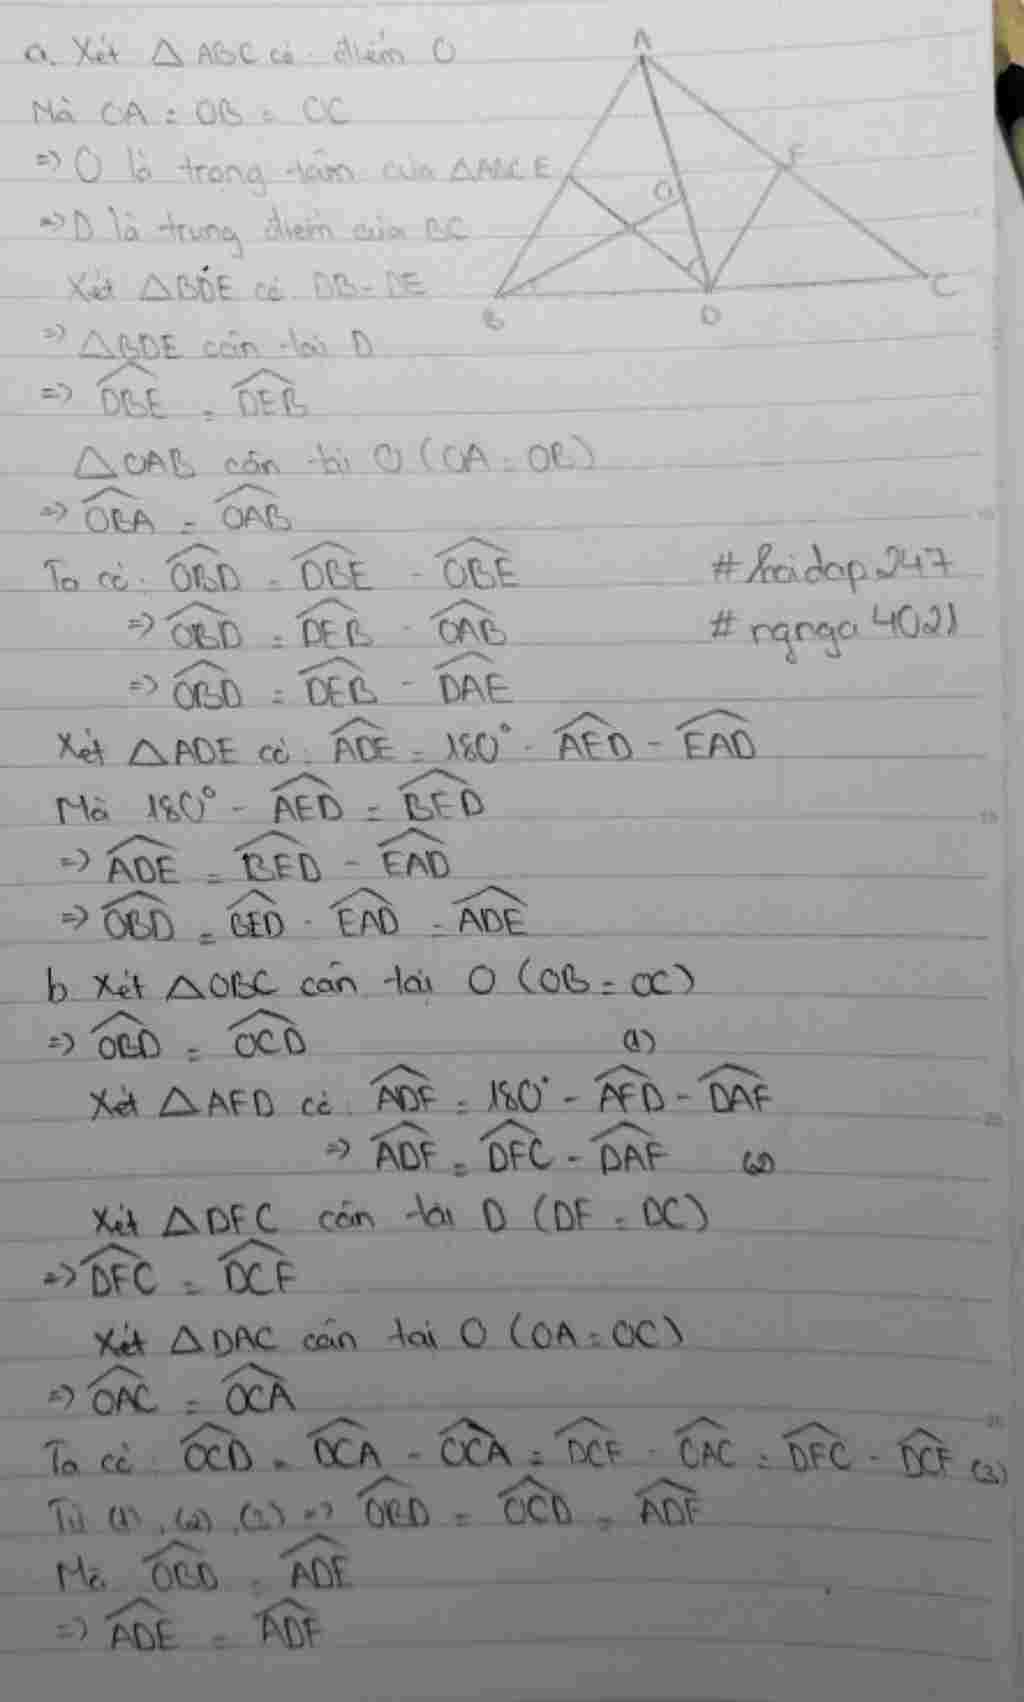 a. Xét △ABC có điểm O
Mà OA = OB = OC
=> O là trọng tâm của △ABC
=> D là trung điểm của BC
Xét △BDE có DB = DE
=> △BDE cân tại D
=> \widehat{DBE} = \widehat{DEB}
△OAB cân tại O (OA = OB)
=> \widehat{OBA} = \widehat{OAB}
Ta có: \widehat{OBD} = \widehat{DBE} - \widehat{OBE}
=> \widehat{OBD} = \widehat{DEB} - \widehat{OAB}
=> \widehat{OBD} = \widehat{DEB} - \widehat{DAE}
#hoidap247
#ngnga4021
Xét △ADE có: \widehat{ADE} = 180° - \widehat{AED} - \widehat{EAD}
Mà 180° - \widehat{AED} = \widehat{BED}
=> \widehat{ADE} = \widehat{BED} - \widehat{EAD}
=> \widehat{OBD} = \widehat{BED} - \widehat{EAD} = \widehat{ADE}
b Xét △OBC cân tại O (OB = OC)
=> \widehat{OBD} = \widehat{OCD} (1)
Xét △AFD có: \widehat{ADF} = 180° - \widehat{AFD} - \widehat{DAF}
=> \widehat{ADF} = \widehat{DFC} - \widehat{DAF} (2)
Xét △DFC cân tại D (DF = DC)
=> \widehat{DFC} = \widehat{DCF}
Xét △DAC cân tại O (OA = OC)
=> \widehat{OAC} = \widehat{OCA}
Ta có: \widehat{OCD} = \widehat{DCA} - \widehat{OCA} = \widehat{DCF} - \widehat{OAC} = \widehat{DFC} - \widehat{DCF} (3)
Từ (1), (2), (3) => \widehat{OBD} = \widehat{OCD} = \widehat{ADF}
Mà \widehat{OBD} = \widehat{ADE}
=> \widehat{ADE} = \widehat{ADF}
A
E
F
O
B
D
C